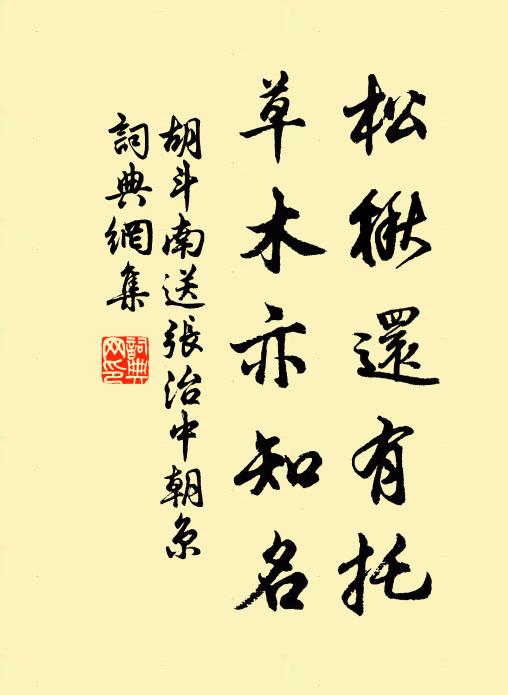 松楸還有托
草木亦知名
胡斗南送張治中朝京
詞典網集
詞典
网印